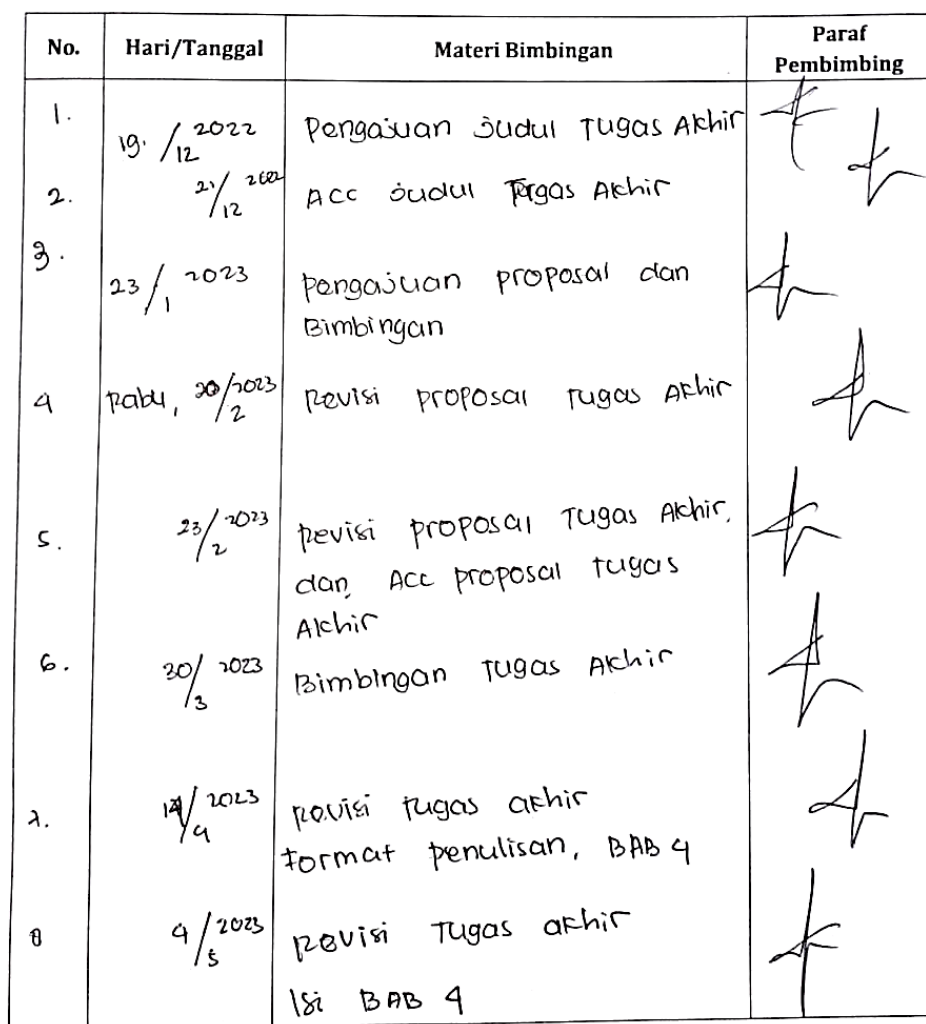 No. Hari/Tanggal Materi Bimbingan Paraf Pembimbing
1. 19. / 12 2022 Pengajuan Judul Tugas Akhir
2. 21/12 2022 ACC Judul Tugas Akhir
3. 23/1 2023 pengajuan proposal dan
Bimbingan
4 Rabu, 20/2 2023 Revisi proposal Tugas Akhir
5. 23/2 2023 Revisi proposal Tugas Akhir,
dan ACC proposal tugas
Akhir
6. 30/3 2023 Bimbingan Tugas Akhir
7. 2023 Revisi tugas akhir
format penulisan, BAB 4
8 4/5 2023 Revisi Tugas akhir
Isi BAB 4